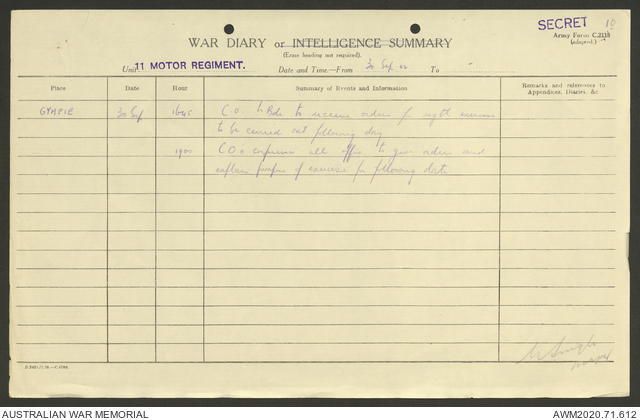 SECRET
10
WAR DIARY or INTELLIGENCE SUMMARY
Army Form C.2118
(adapted.)
(Erase heading not required).
Unit 11 MOTOR REGIMENT.
Date and Time.—From 30 Sep 42 To
Place Date Hour Summary of Events and Information Remarks and references to Appendices, Diaries, &c
GYMPIE 30 Sep 1645 C.O. to Bde to receive orders for night exercise
to be carried out following day
1900 CO's conference all offrs to give orders and
explain purpose of exercise for following date
AUSTRALIAN WAR MEMORIAL
AWM2020.71.612